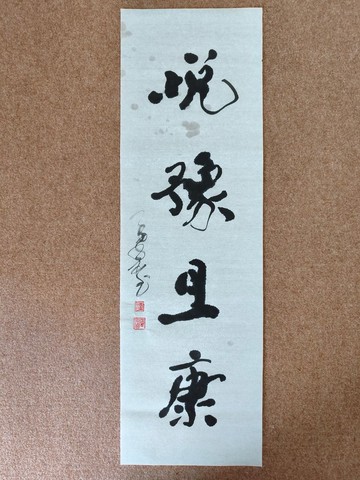 悦豫且康